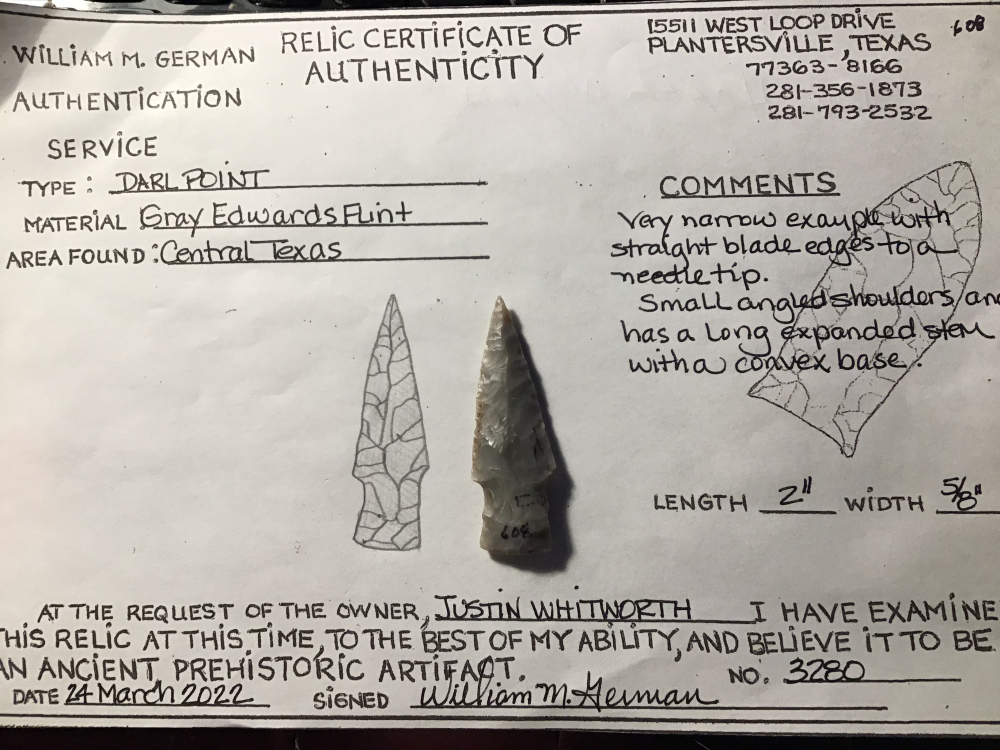 WILLIAM M. GERMAN
AUTHENTICATION
SERVICE
RELIC CERTIFICATE OF
AUTHENTICITY
15511 WEST LOOP DRIVE
PLANTERSVILLE, TEXAS
77363-8166
281-356-1873
281-793-2532
608
TYPE: DARL POINT
MATERIAL Gray Edwards Flint
AREA FOUND: Central Texas
COMMENTS
Very narrow example with
straight blade edges to a
needle tip.
Small angled shoulders and
has a Long expanded stem
with a convex base.
608
LENGTH 2" WIDTH 5/8"
AT THE REQUEST OF THE OWNER, JUSTIN WHITWORTH I HAVE EXAMINE
THIS RELIC AT THIS TIME, TO THE BEST OF MY ABILITY, AND BELIEVE IT TO BE
AN ANCIENT, PREHISTORIC ARTIFACT.
NO. 3280
DATE 24 March 2022 SIGNED William M. German